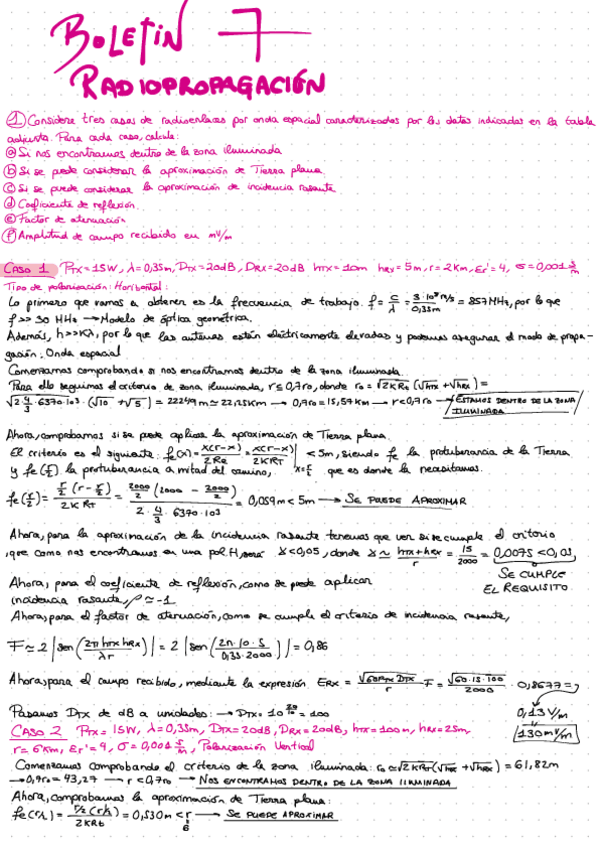 BOLETIN 7
RADIOPROPAGACIÓN
① Considere tres casos de radioenlaces por onda espacial caracterizados por los datos indicados en la tabla
adjunta. Para cada caso, calcule:
ⓐ Si nos encontramos dentro de la zona iluminada
ⓑ Si se puede considerar la aproximación de Tierra plana.
ⓒ Si se puede considerar la aproximación de incidencia rasante
ⓓ Coeficiente de reflexión.
ⓔ Factor de atenuación
ⓕ Amplitud de campo recibido en mV/m
CASO 1 PTX = 15W, λ = 0,35m, DTX = 20dB, DRX = 20dB hTX = 10m hRX = 5m, r = 2Km, Er' = 4, σ = 0,001 S/m
Tipo de polarización: Horizontal:
Lo primero que vamos a obtener es la frecuencia de trabajo. f = c/λ = 3·10⁸ m/s / 0,35m = 857 MHz, por lo que
f >> 30 MHz → Modelo de óptica geométrica.
Además, h >> λ, por lo que las antenas están eléctricamente elevadas y podemos asegurar el modo de propa-
gación, Onda espacial
Comenzamos comprobando si nos encontramos dentro de la zona iluminada.
Para ello seguimos el criterio de zona iluminada, r ≤ 0,7r₀, donde r₀ = √2KR₀ (√hTX + √hRX) =
√2·4/3·6370·10³ · (√10 + √5) = 22249m ≃ 22,25Km → 0,7r₀ = 15,57Km → r < 0,7r₀ → ESTAMOS DENTRO DE LA ZONA
ILUMINADA
Ahora, comprobamos si se puede aplicar la aproximación de Tierra plana.
El criterio es el siguiente: fe(x) = x(r-x)/2Re = x(r-x)/2KRT | x=r/2 < 5m, siendo fe la protuberancia de la Tierra
y fe(r/2) la protuberancia a mitad del camino, que es donde la necesitamos.
fe(r/2) = r/2 (r - r/2) / 2KRT = 2000/2 (2000 - 2000/2) / 2·4/3·6370·10³ = 0,059m < 5m → SE PUEDE APROXIMAR
Ahora, para la aproximación de la incidencia rasante tenemos que ver si se cumple el criterio
, que como nos encontramos en una pol. H, será γ < 0,05, donde γ ≃ hTX + hRX / r = 15/2000 = 0,0075 < 0,05,
SE CUMPLE
EL REQUISITO
Ahora, para el coeficiente de reflexión, como se puede aplicar
incidencia rasante, ρ ≃ -1
Ahora, para el factor de atenuación, como se cumple el criterio de incidencia rasante,
F ≃ 2 |sen(2π hTX hRX / λr)| = 2 |sen(2π·10·5 / 0,35·2000)| = 0,86
Ahora, para el campo recibido, mediante la expresión ERX = √60PTX DTX / r · F = √60·15·100 / 2000 · 0,8677 =
Pasamos DTX de dB a unidades: → DTX = 10^(20/10) = 100
0,13 V/m
130 mV/m
CASO 2 PTX = 15W, λ = 0,35m, DTX = 20dB, DRX = 20dB, hTX = 100m, hRX = 25m,
r = 6Km, Er' = 4, σ = 0,001 S/m, Polarización Vertical
Comenzamos comprobando el criterio de la zona iluminada: r₀ ≃ √2KRT (√hTX + √hRX) = 61,82m
→ 0,7r₀ = 43,27 → r < 0,7r₀ → NOS ENCONTRAMOS DENTRO DE LA ZONA ILUMINADA
Ahora, comprobamos la aproximación de Tierra plana:
fe(r/2) = r/2 (r/2) / 2KRt = 0,530m < r/6 → SE PUEDE APROXIMAR